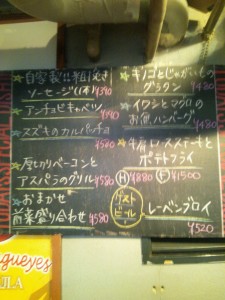 自家製!!粗挽き
ソーセージ(1本)¥390
アンチョビキャベツ
スズキのカルパッチョ
¥580
厚切りベーコンと
アスパラのグリル¥580
おまかせ
前菜盛り合わせ
¥580
キノコとじゃがいもの
グラタン ¥480
イワシとマグロの
お魚ハンバーグ
¥480
牛肩ロースステーキと
ポテトフライ
Ⓗ¥880 Ⓕ¥1500
ゲスト
ビール
レーベンブロイ
¥520
gueyes